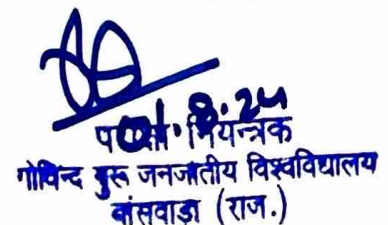 01.8.24
परीक्षा नियन्त्रक
गोविन्द गुरू जनजातीय विश्वविद्यालय
बांसवाड़ा (राज.)